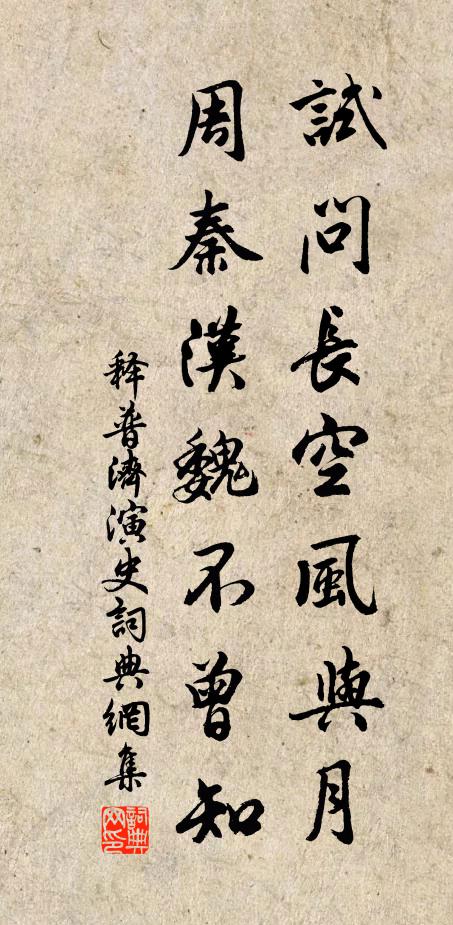 試問長空風與月
周秦漢魏不曾知
释普濟演史詞典網集
詞典
网印